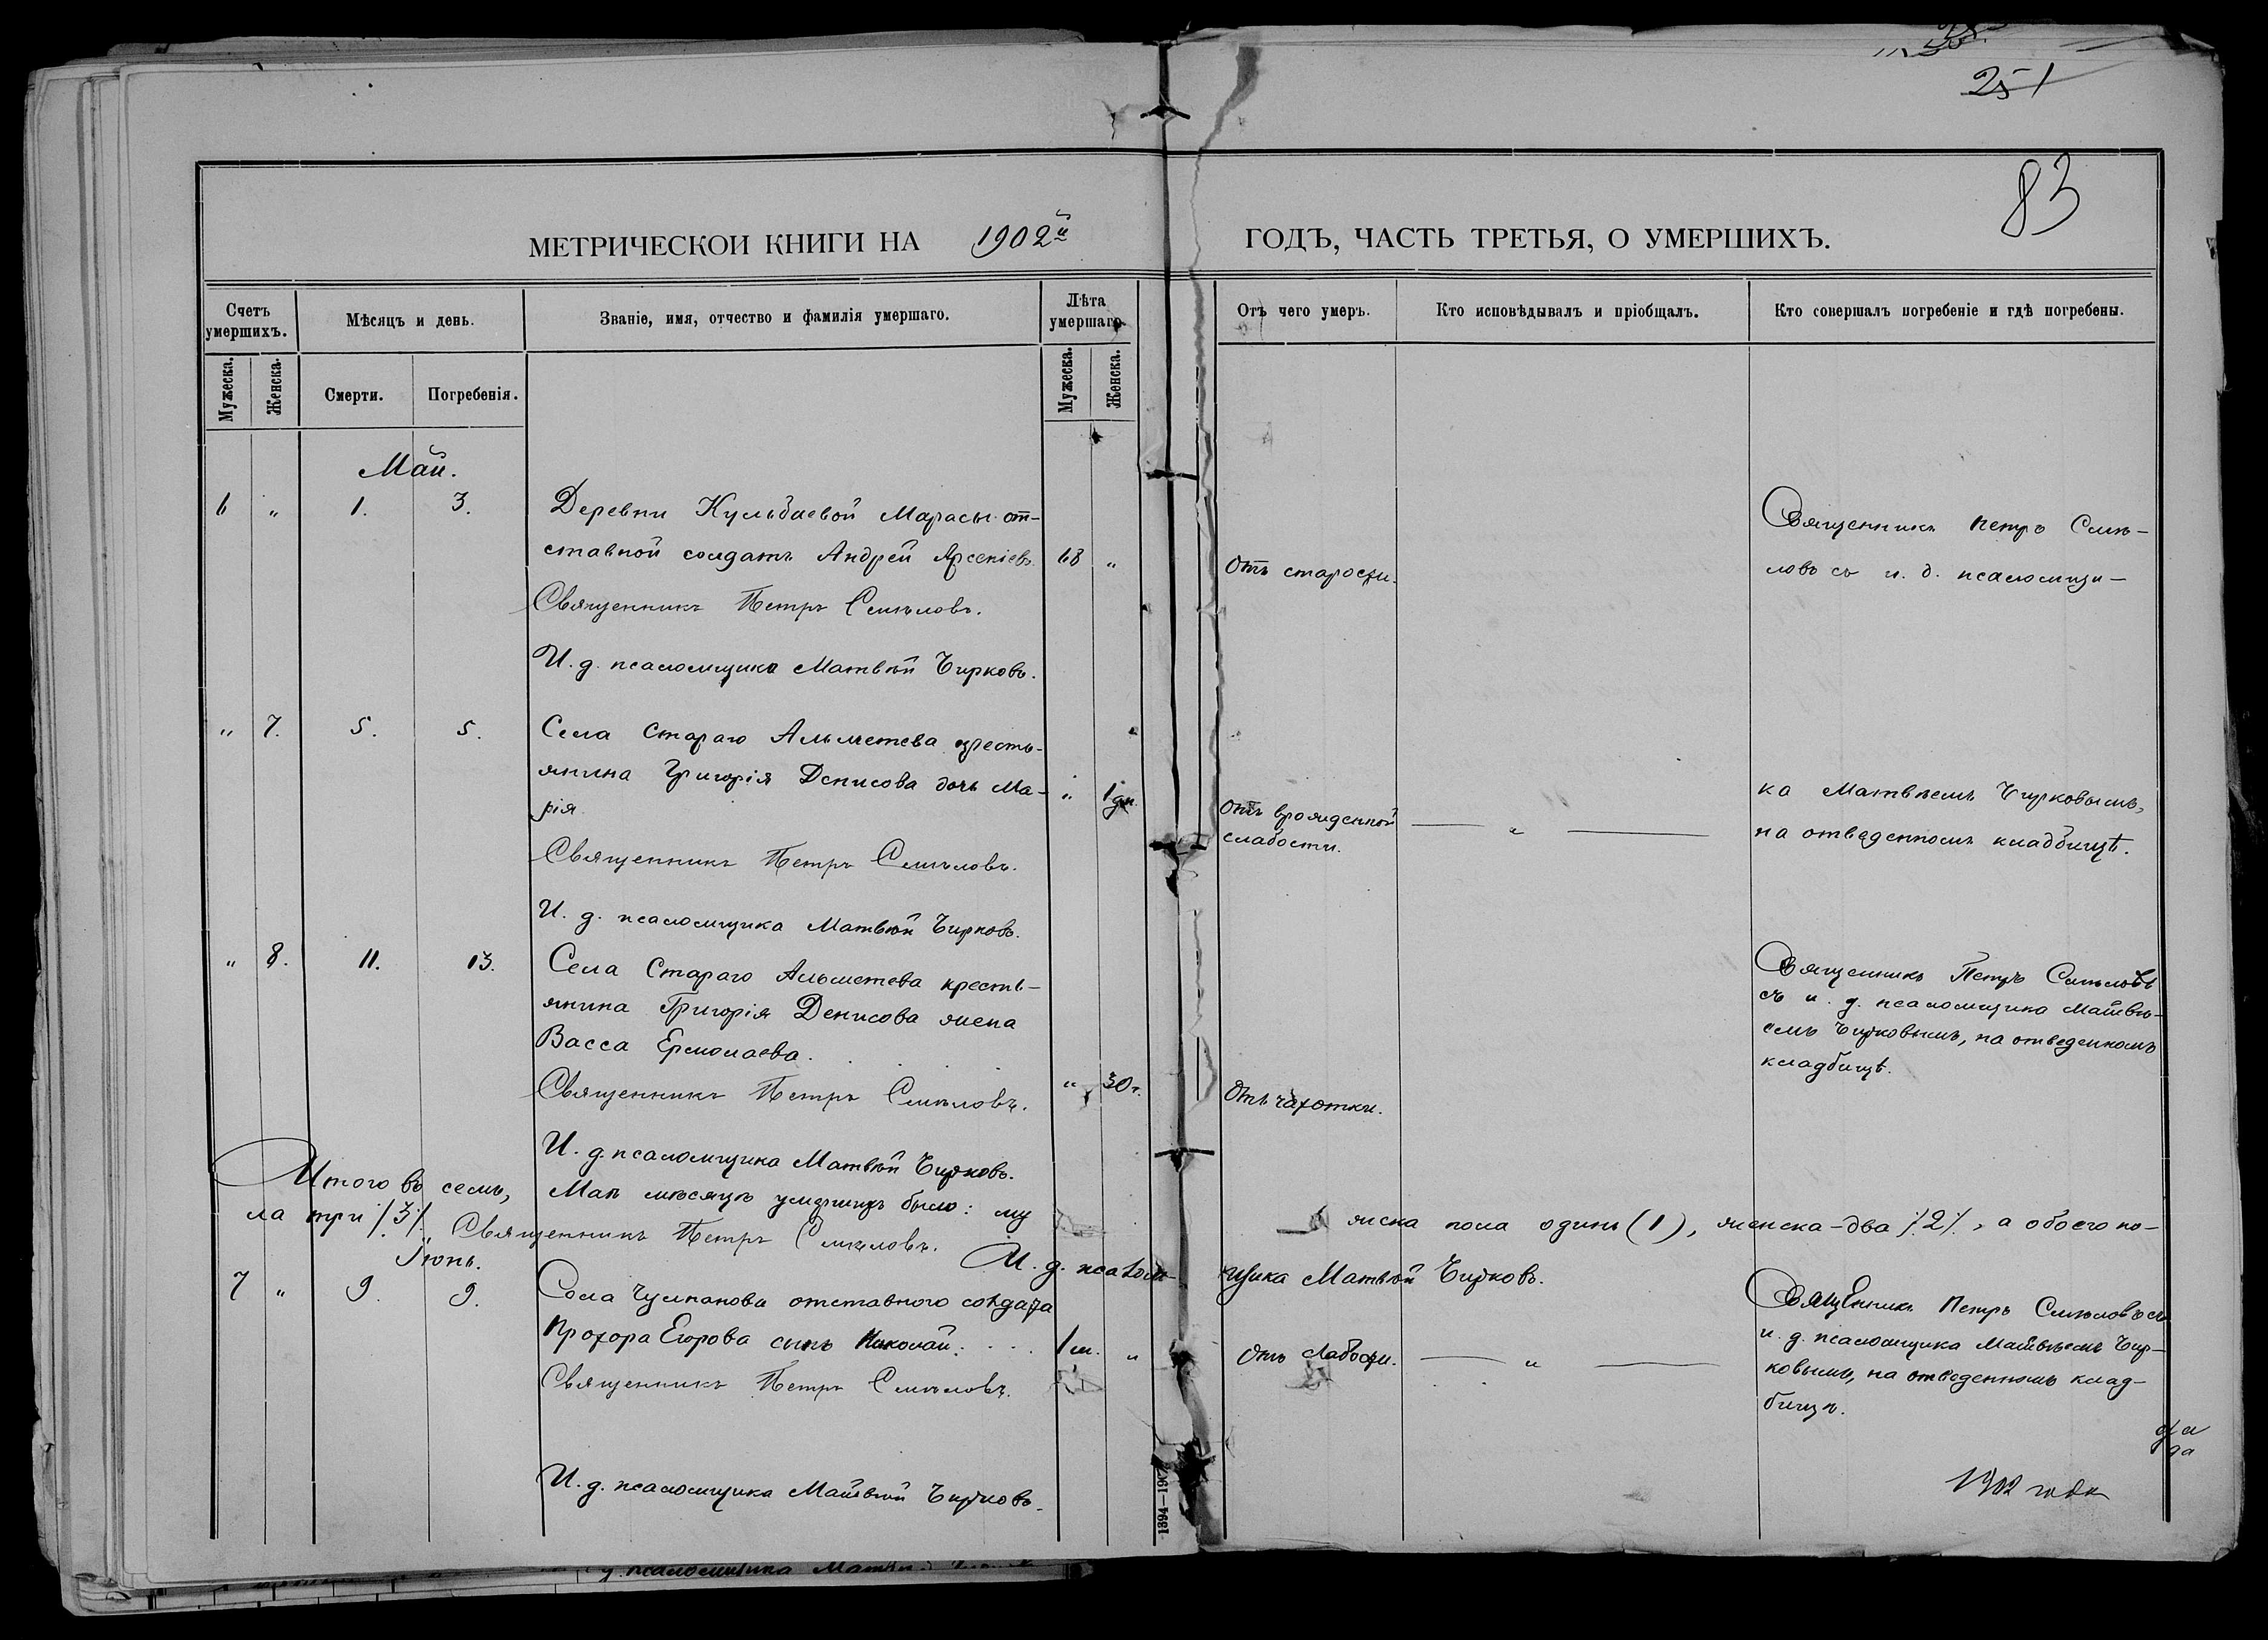 251
83
МЕТРИЧЕСКОЙ КНИГИ НА 1902й ГОДЪ, ЧАСТЬ ТРЕТЬЯ, О УМЕРШИХЪ.
Счетъ умершихъ.
Мѣсяцъ и день.
Званіе, имя, отчество и фамилія умершаго.
Лѣта умершаго.
Отъ чего умеръ.
Кто исповѣдывалъ и пріобщалъ.
Кто совершалъ погребеніе и гдѣ погребены.
Мужеска.
Женска.
Смерти.
Погребенія.
Мужеска.
Женска.
Май.
6 " 1. 3. Деревни Кульбаевой Марасы от-
ставной солдатъ Андрей Арсеніевъ 68 "
Отъ старости.
Священникъ Петръ Смѣ-
ловъ съ и. д. псаломщи-
Священникъ Петръ Смѣловъ.
И. д. псаломщика Матвѣй Чирковъ.
" 7. 5. 5. Села Стараго Альметева кресть-
янина Григорія Денисова дочь Ма-
рія
" 1 дн.
Отъ врожденной
слабости.
— " —
ка Матвѣемъ Чирковымъ,
на отведенномъ кладбищѣ.
Священникъ Петръ Смѣловъ.
И. д. псаломщика Матвѣй Чирковъ.
" 8. 11. 13. Села Стараго Альметева кресть-
янина Григорія Денисова жена
Васса Ермолаева.
" 30 г.
Отъ чахотки.
Священникъ Петръ Смѣловъ
съ и. д. псаломщика Матвѣ-
емъ Чирковымъ, на отведенномъ
кладбищѣ.
Священникъ Петръ Смѣловъ.
И. д. псаломщика Матвѣй Чирковъ.
Итого въ семъ, Маѣ мѣсяцѣ умершихъ было: му
жска пола одинъ (1), женска - два /2/, а обоего по-
ла три /3/. Священникъ Петръ Смѣловъ.
И. д. псалом-
щика Матвѣй Чирковъ.
Іюнь.
7 " 9. 9. Села Чулпанова отставного солдата
Прохора Егорова сынъ Николай. 1 м. "
Отъ слабости.
— " —
Священникъ Петръ Смѣловъ съ
и. д. псаломщика Матвѣемъ Чир-
ковымъ, на отведенномъ клад-
бищѣ.
Священникъ Петръ Смѣловъ.
И. д. псаломщика Матвѣй Чирковъ.
1902 года